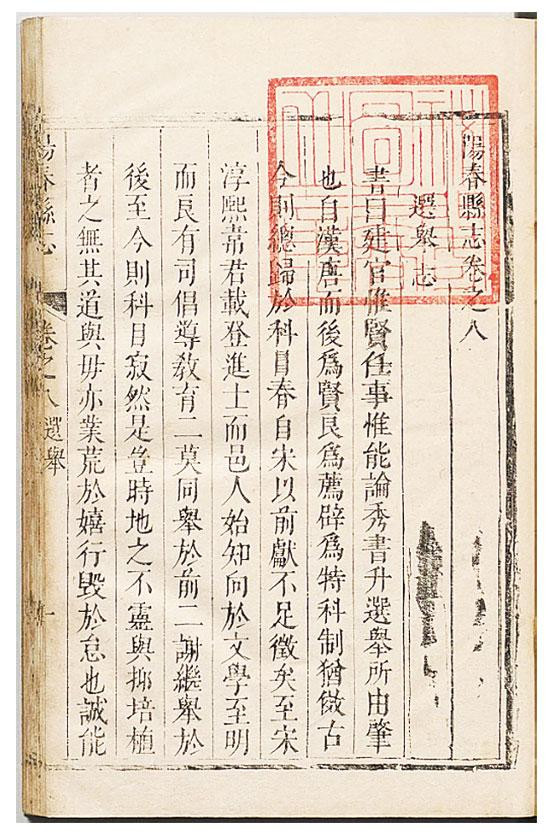 陽春縣志卷之八
選舉志
書曰建官惟賢任事惟能論秀書升選舉所由肇
也自漢唐而後爲賢良爲薦辟爲特科制猶倣古
今則總歸於科目春自宋以前獻不足徵矣至宋
淳熙載登進士而邑人始知向於文學至明
而良有司倡導教育二莫同舉於前二謝繼舉於
後至今則科目寂然是豈時地之不靈與抑培植
者之無其道與毋亦業荒於嬉行毀於怠也誠能
陽春縣志
卷之八選舉
一